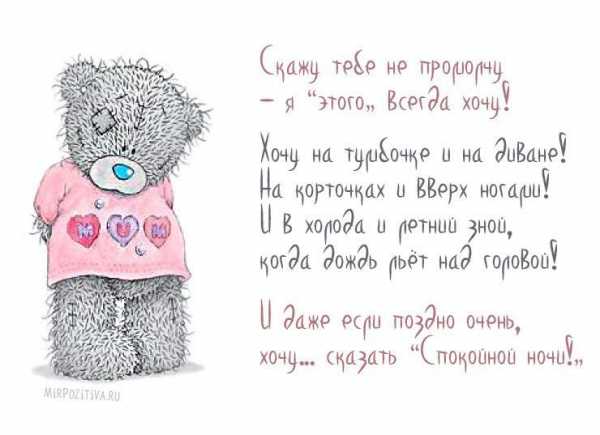 Скажу тебе не промолчу
– я “этого„ всегда хочу!
Хочу на тумбочке и на диване!
На корточках и вверх ногами!
И в холода и летний зной,
когда дождь льёт над головой!
И даже если поздно очень,
хочу... сказать “Спокойной ночи!„
M U M
MIRPOZITIVA.RU